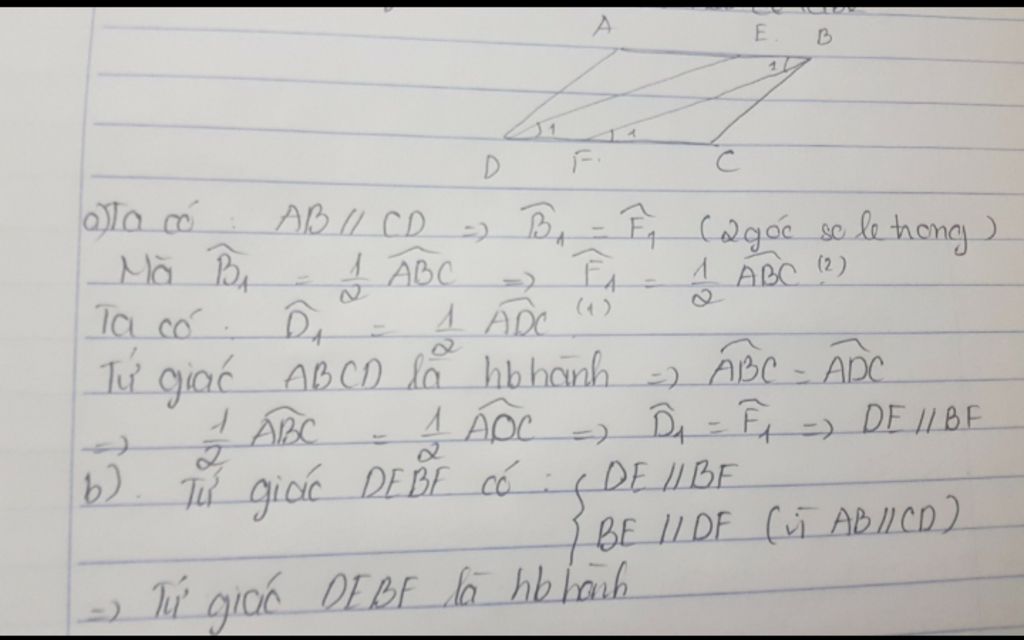 A E. B
1
1 1
D F. C
a) Ta có : AB // CD => B̂₁ = F̂₁ (2 góc so le trong)
Mà B̂₁ = 1/2 ABC => F̂₁ = 1/2 ABC (2)
Ta có : D̂₁ = 1/2 ADC (1)
Tứ giác ABCD là hbhành => ABC = ADC
=> 1/2 ABC = 1/2 ADC => D̂₁ = F̂₁ => DE // BF
b). Tứ giác DEBF có : { DE // BF
BE // DF (vì AB // CD)
=> Tứ giác DEBF là hbhành